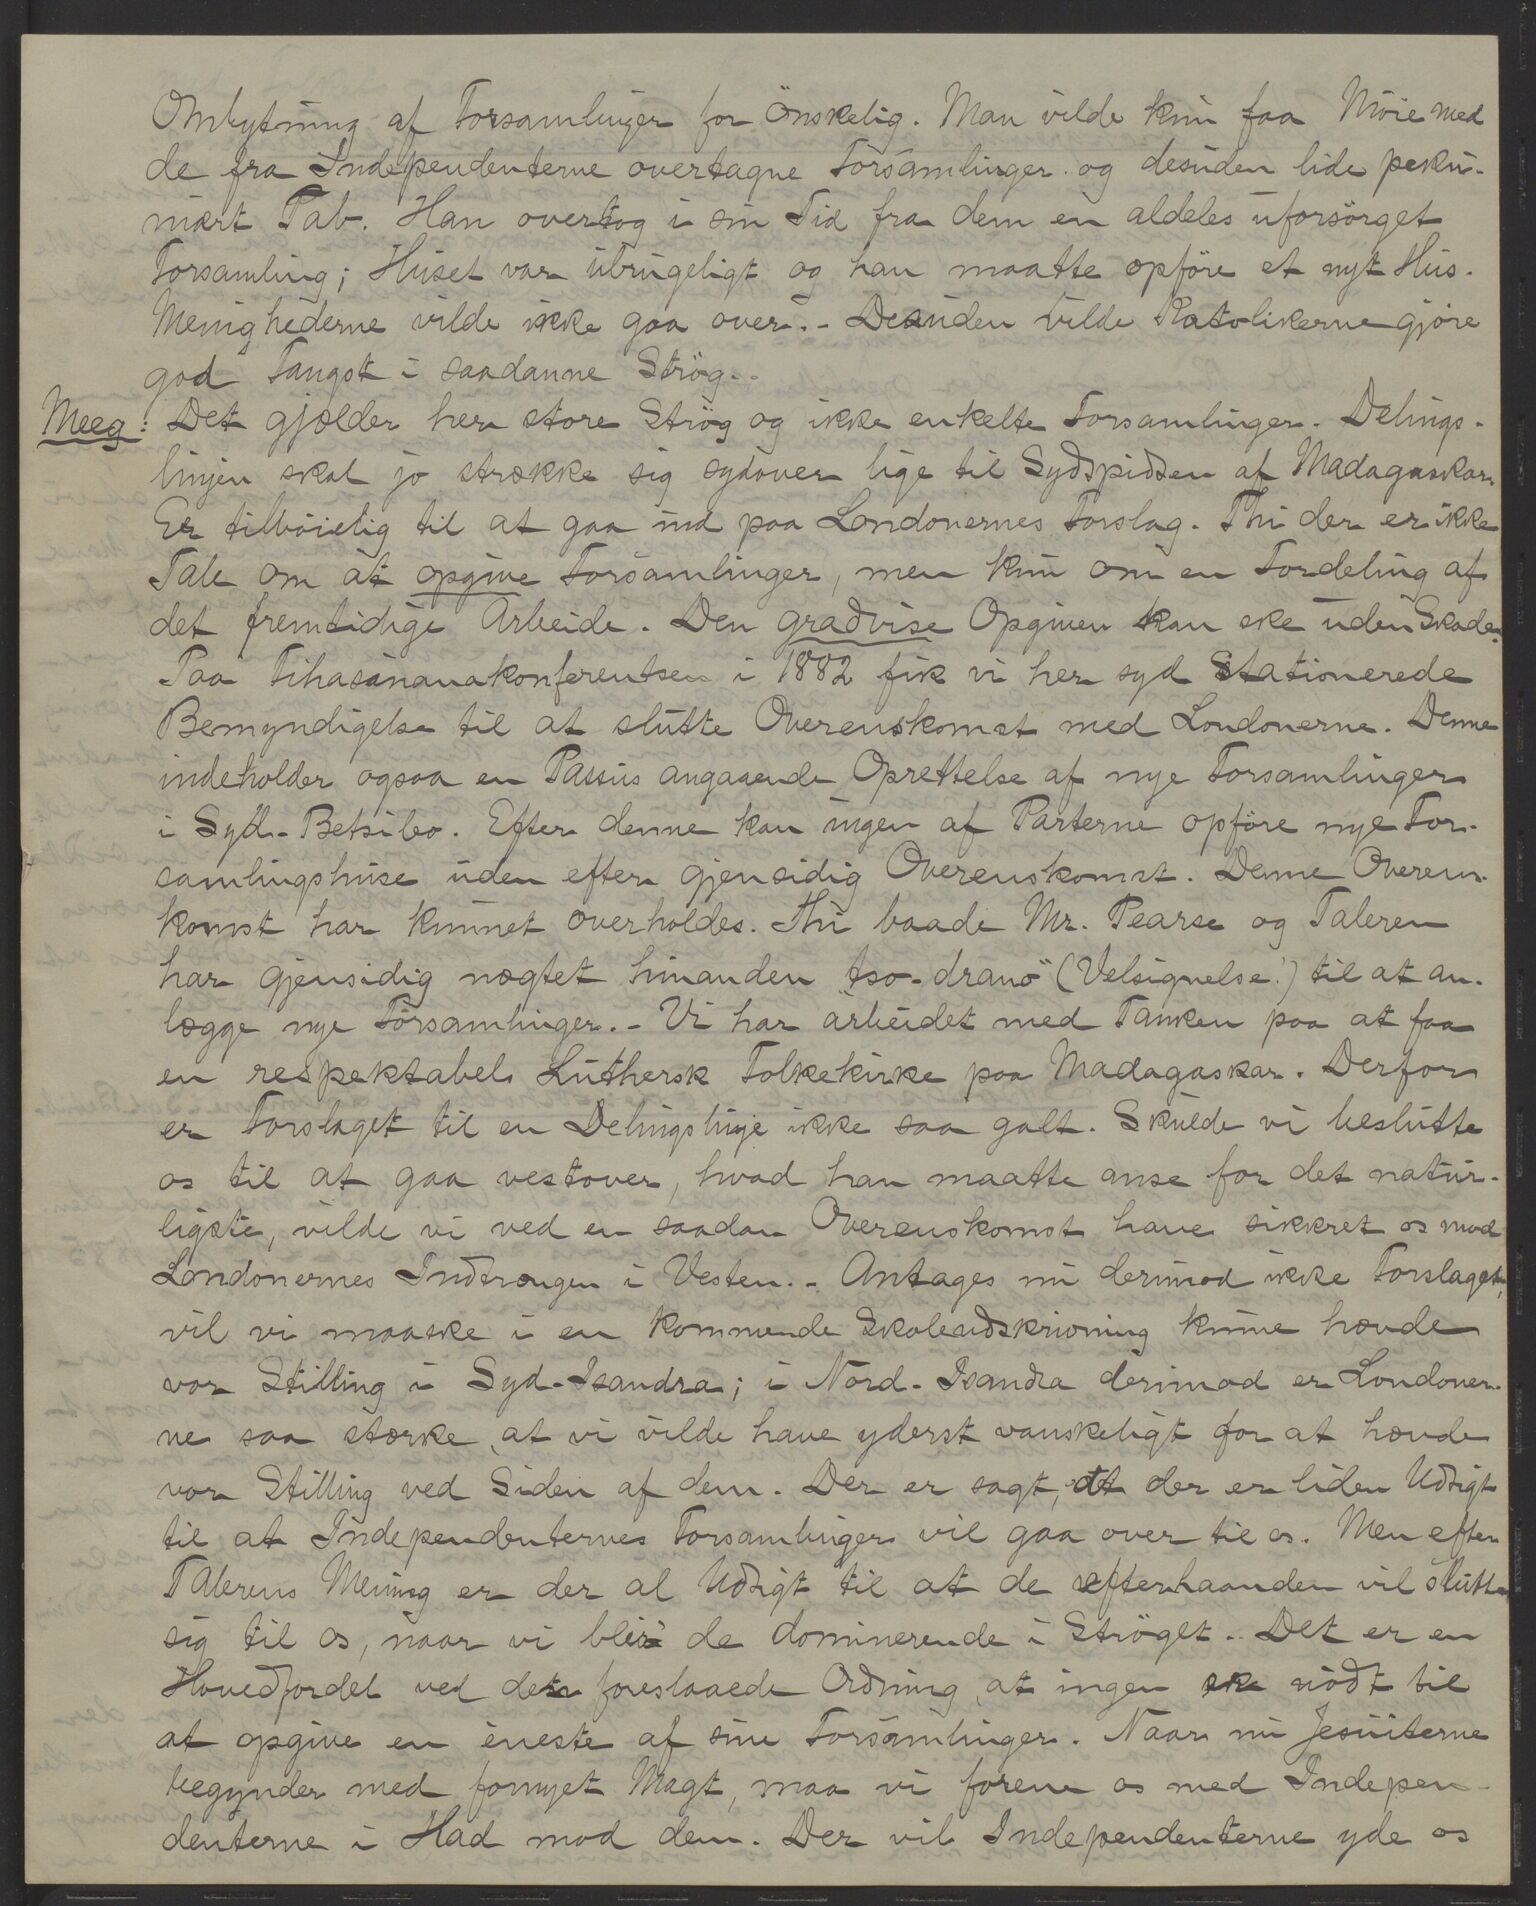 Ombytning af Forsamlinger for Önskelig. Man vilde kun faa Möie med
de fra Independenterne overtagne Forsamlinger og desuden lide peku-
niært Tab. Han overtog i sin Tid fra dem en aldeles uforsörget
Forsamling; Huset var ubrugeligt og han maatte opföre et nyt Hus.
Menighederne vilde ikke gaa over. - Desuden vilde Katolikerne gjöre
god Fangst i saadanne Strög. -
Meeg: Det gjælder her store Strög og ikke enkelte Forsamlinger. Delings-
linjen skal jo strække sig sydover lige til Sydspidsen af Madagaskar.
Er tilböielig til at gaa ind paa Londonernes Forslag. Thi der er ikke
Tale om at opgive Forsamlinger, men kun om en Fordeling af
det fremtidige Arbeide. Den gradvise Opgiven kan ske uden Skade.
Paa Fihasinanakonferentsen i 1882 fik vi her syd Stationerede
Bemyndigelse til at slutte Overenskomst med Londonerne. Denne
indeholder ogsaa en Passus angaaende Oprettelse af nye Forsamlinger
i Syd-Betsileo. Efter denne kan ingen af Parterne opföre nye For-
samlingshuse uden efter gjensidig Overenskomst. Denne Overens-
komst har kunnet overholdes. Thi baade Mr. Pearse og Taleren
har gjensidig nægtet hinanden "tso-drano" (Velsignelse!) til at an-
lægge nye Forsamlinger. - Vi har arbeidet med Tanken paa at faa
en respektabel Luthersk Folkekirke paa Madagaskar. Derfor
er Forslaget til en Delingslinje ikke saa galt. Skulde vi beslutte
os til at gaa vestover, hvad han maatte anse for det natur-
ligste, vilde vi ved en saadan Overenskomst have sikkret os mod
Londonernes Indtrængen i Vesten. - Antages nu derimod ikke Forslaget,
vil vi maaske i en kommende Skoleudskrivning kunne hævde
vor Stilling i Syd-Isandra; i Nord-Isandra derimod er Londoner-
ne saa stærke, at vi vilde have yderst vanskeligt for at hævde
vor Stilling ved Siden af dem. Der er sagt, at der er liden Udsigt
til at Independenternes Forsamlinger vil gaa over til os. Men efter
Talerens Mening er der al Udsigt til at de efterhaanden vil slutte
sig til os, naar vi bliver de dominerende i Ströget. - Det er en
Hovedfordel ved den foreslaaede Ordning, at ingen er nödt til
at opgive en eneste af sine Forsamlinger. Naar nu Jesuiterne
begynder med fornyet Magt, maa vi forene os med Indepen-
denterne i Had mod dem. Der vil Independenterne yde os